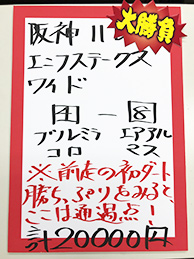 大勝負
阪神11
エニフステークス
ワイド
ー
ブルミラ エアアル
コロ マス
※前走の初ダート
勝ちっぷりをみると、
ここは通過点！
20000円